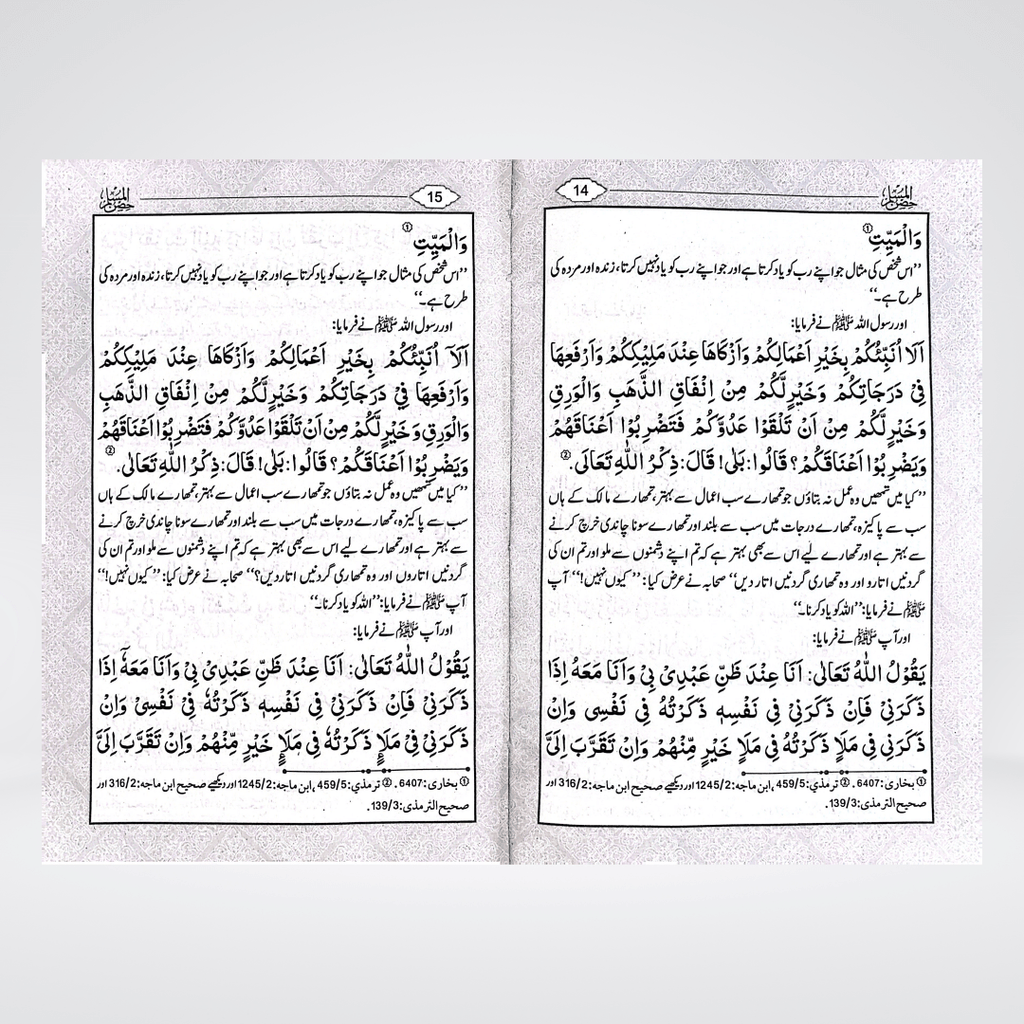 حصن المسلم
14
وَالْمَيِّتِ ①
’’اس شخص کی مثال جو اپنے رب کو یاد کرتا ہے اور جو اپنے رب کو یاد نہیں کرتا، زندہ اور مردہ کی
طرح ہے۔‘‘
اور رسول اللہ ﷺ نے فرمایا:
اَلَا اُنَبِّئُكُمْ بِخَيْرِ اَعْمَالِكُمْ وَاَزْكَاهَا عِنْدَ مَلِيْكِكُمْ وَاَرْفَعِهَا
فِيْ دَرَجَاتِكُمْ وَخَيْرٍ لَّكُمْ مِنْ اِنْفَاقِ الذَّهَبِ وَالْوَرِقِ
وَخَيْرٍ لَّكُمْ مِنْ اَنْ تَلْقَوْا عَدُوَّكُمْ فَتَضْرِبُوْا اَعْنَاقَهُمْ
وَيَضْرِبُوْا اَعْنَاقَكُمْ؟ قَالُوا: بَلٰى! قَالَ: ذِكْرُ اللّٰهِ تَعَالَى. ②
’’کیا میں تمھیں وہ عمل نہ بتاؤں جو تمھارے سب اعمال سے بہتر، تمھارے مالک کے ہاں
سب سے پاکیزہ، تمھارے درجات میں سب سے بلند اور تمھارے سونا چاندی خرچ کرنے
سے بہتر ہے اور تمھارے لیے اس سے بھی بہتر ہے کہ تم اپنے دشمنوں سے ملو اور تم ان کی
گردنیں اتارو اور وہ تمھاری گردنیں اتار دیں‘‘ صحابہ نے عرض کیا: ’’کیوں نہیں!‘‘ آپ
ﷺ نے فرمایا: ’’اللہ کو یاد کرنا۔‘‘
اور آپ ﷺ نے فرمایا:
يَقُوْلُ اللّٰهُ تَعَالٰى: اَنَا عِنْدَ ظَنِّ عَبْدِيْ بِيْ وَاَنَا مَعَهٗ اِذَا
ذَكَرَنِيْ فَاِنْ ذَكَرَنِيْ فِي نَفْسِهٖ ذَكَرْتُهٗ فِي نَفْسِى وَاِنْ
ذَكَرَنِي فِي مَلَاٍ ذَكَرْتُهٗ فِي مَلَاٍ خَيْرٍ مِّنْهُمْ وَاِنْ تَقَرَّبَ اِلَيَّ
① بخاری: 6407. ② ترمذی: 459/5، ابن ماجہ: 1245/2 اور دیکھیے صحیح ابن ماجہ: 316/2 اور
صحیح الترمذی: 139/3.
15
حصن المسلم
وَالْمَيِّتِ ①
’’اس شخص کی مثال جو اپنے رب کو یاد کرتا ہے اور جو اپنے رب کو یاد نہیں کرتا، زندہ اور مردہ کی
طرح ہے۔‘‘
اور رسول اللہ ﷺ نے فرمایا:
اَلَآ اُنَبِّئُكُمْ بِخَيْرِ اَعْمَالِكُمْ وَاَزْكَاهَا عِنْدَ مَلِيْكِكُمْ
وَاَرْفَعِهَا فِيْ دَرَجَاتِكُمْ وَخَيْرٍ لَّكُمْ مِنْ اِنْفَاقِ الذَّهَبِ
وَالْوَرِقِ وَخَيْرٍ لَّكُمْ مِنْ اَنْ تَلْقَوْا عَدُوَّكُمْ فَتَضْرِبُوْا اَعْنَاقَهُمْ
وَيَضْرِبُوْا اَعْنَاقَكُمْ؟ قَالُوا: بَلٰى! قَالَ: ذِكْرُ اللّٰهِ تَعَالٰى. ②
’’کیا میں تمھیں وہ عمل نہ بتاؤں جو تمھارے سب اعمال سے بہتر، تمھارے مالک کے ہاں
سب سے پاکیزہ، تمھارے درجات میں سب سے بلند اور تمھارے سونا چاندی خرچ کرنے
سے بہتر ہے اور تمھارے لیے اس سے بھی بہتر ہے کہ تم اپنے دشمنوں سے ملو اور تم ان کی
گردنیں اتاروں اور وہ تمھاری گردنیں اتار دیں؟‘‘ صحابہ نے عرض کیا: ’’کیوں نہیں!‘‘
آپ ﷺ نے فرمایا: ’’اللہ کو یاد کرنا۔‘‘
اور آپ ﷺ نے فرمایا:
يَقُوْلُ اللّٰهُ تَعَالٰى: اَنَا عِنْدَ ظَنِّ عَبْدِيْ بِيْ وَاَنَا مَعَهٗٓ اِذَا
ذَكَرَنِيْ فَاِنْ ذَكَرَنِيْ فِي نَفْسِهٖ ذَكَرْتُهٗ فِيْ نَفْسِيْ وَاِنْ
ذَكَرَنِيْ فِيْ مَلَاٍ ذَكَرْتُهٗ فِيْ مَلَاٍ خَيْرٍ مِّنْهُمْ وَاِنْ تَقَرَّبَ اِلَيَّ
① بخاری: 6407. ② ترمذی: 459/5، ابن ماجہ: 1245/2 اور دیکھیے صحیح ابن ماجہ: 316/2 اور
صحیح الترمذی: 139/3.